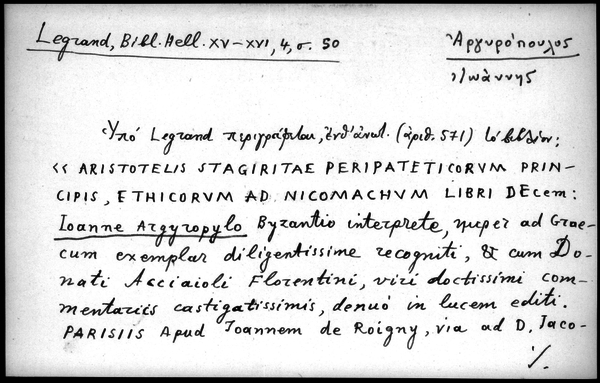 Legrand, Bibl. Hell. XV–XVI, 4, σ. 50
Ἀργυρόπουλος
Ἰωάννης
Ὑπό Legrand περιγράφεται, ἐνθ' ἀνωτ. (ἀριθ. 571) τό βιβλίον:
<< ARISTOTELIS STAGIRITAE PERIPATETICORVM PRIN-
CIPIS, ETHICORVM AD NICOMACHVM LIBRI DEcem:
Ioanne Argyropylo Byzantio interprete, nuper ad Grae-
cum exemplar diligentissime recogniti, & cum Do-
nati Acciaioli Florentini, viri doctissimi com-
mentariis castigatissimis, denuó in lucem editi.
PARISIIS Apud Ioannem de Roigny, via ad D. Jaco-
·/.